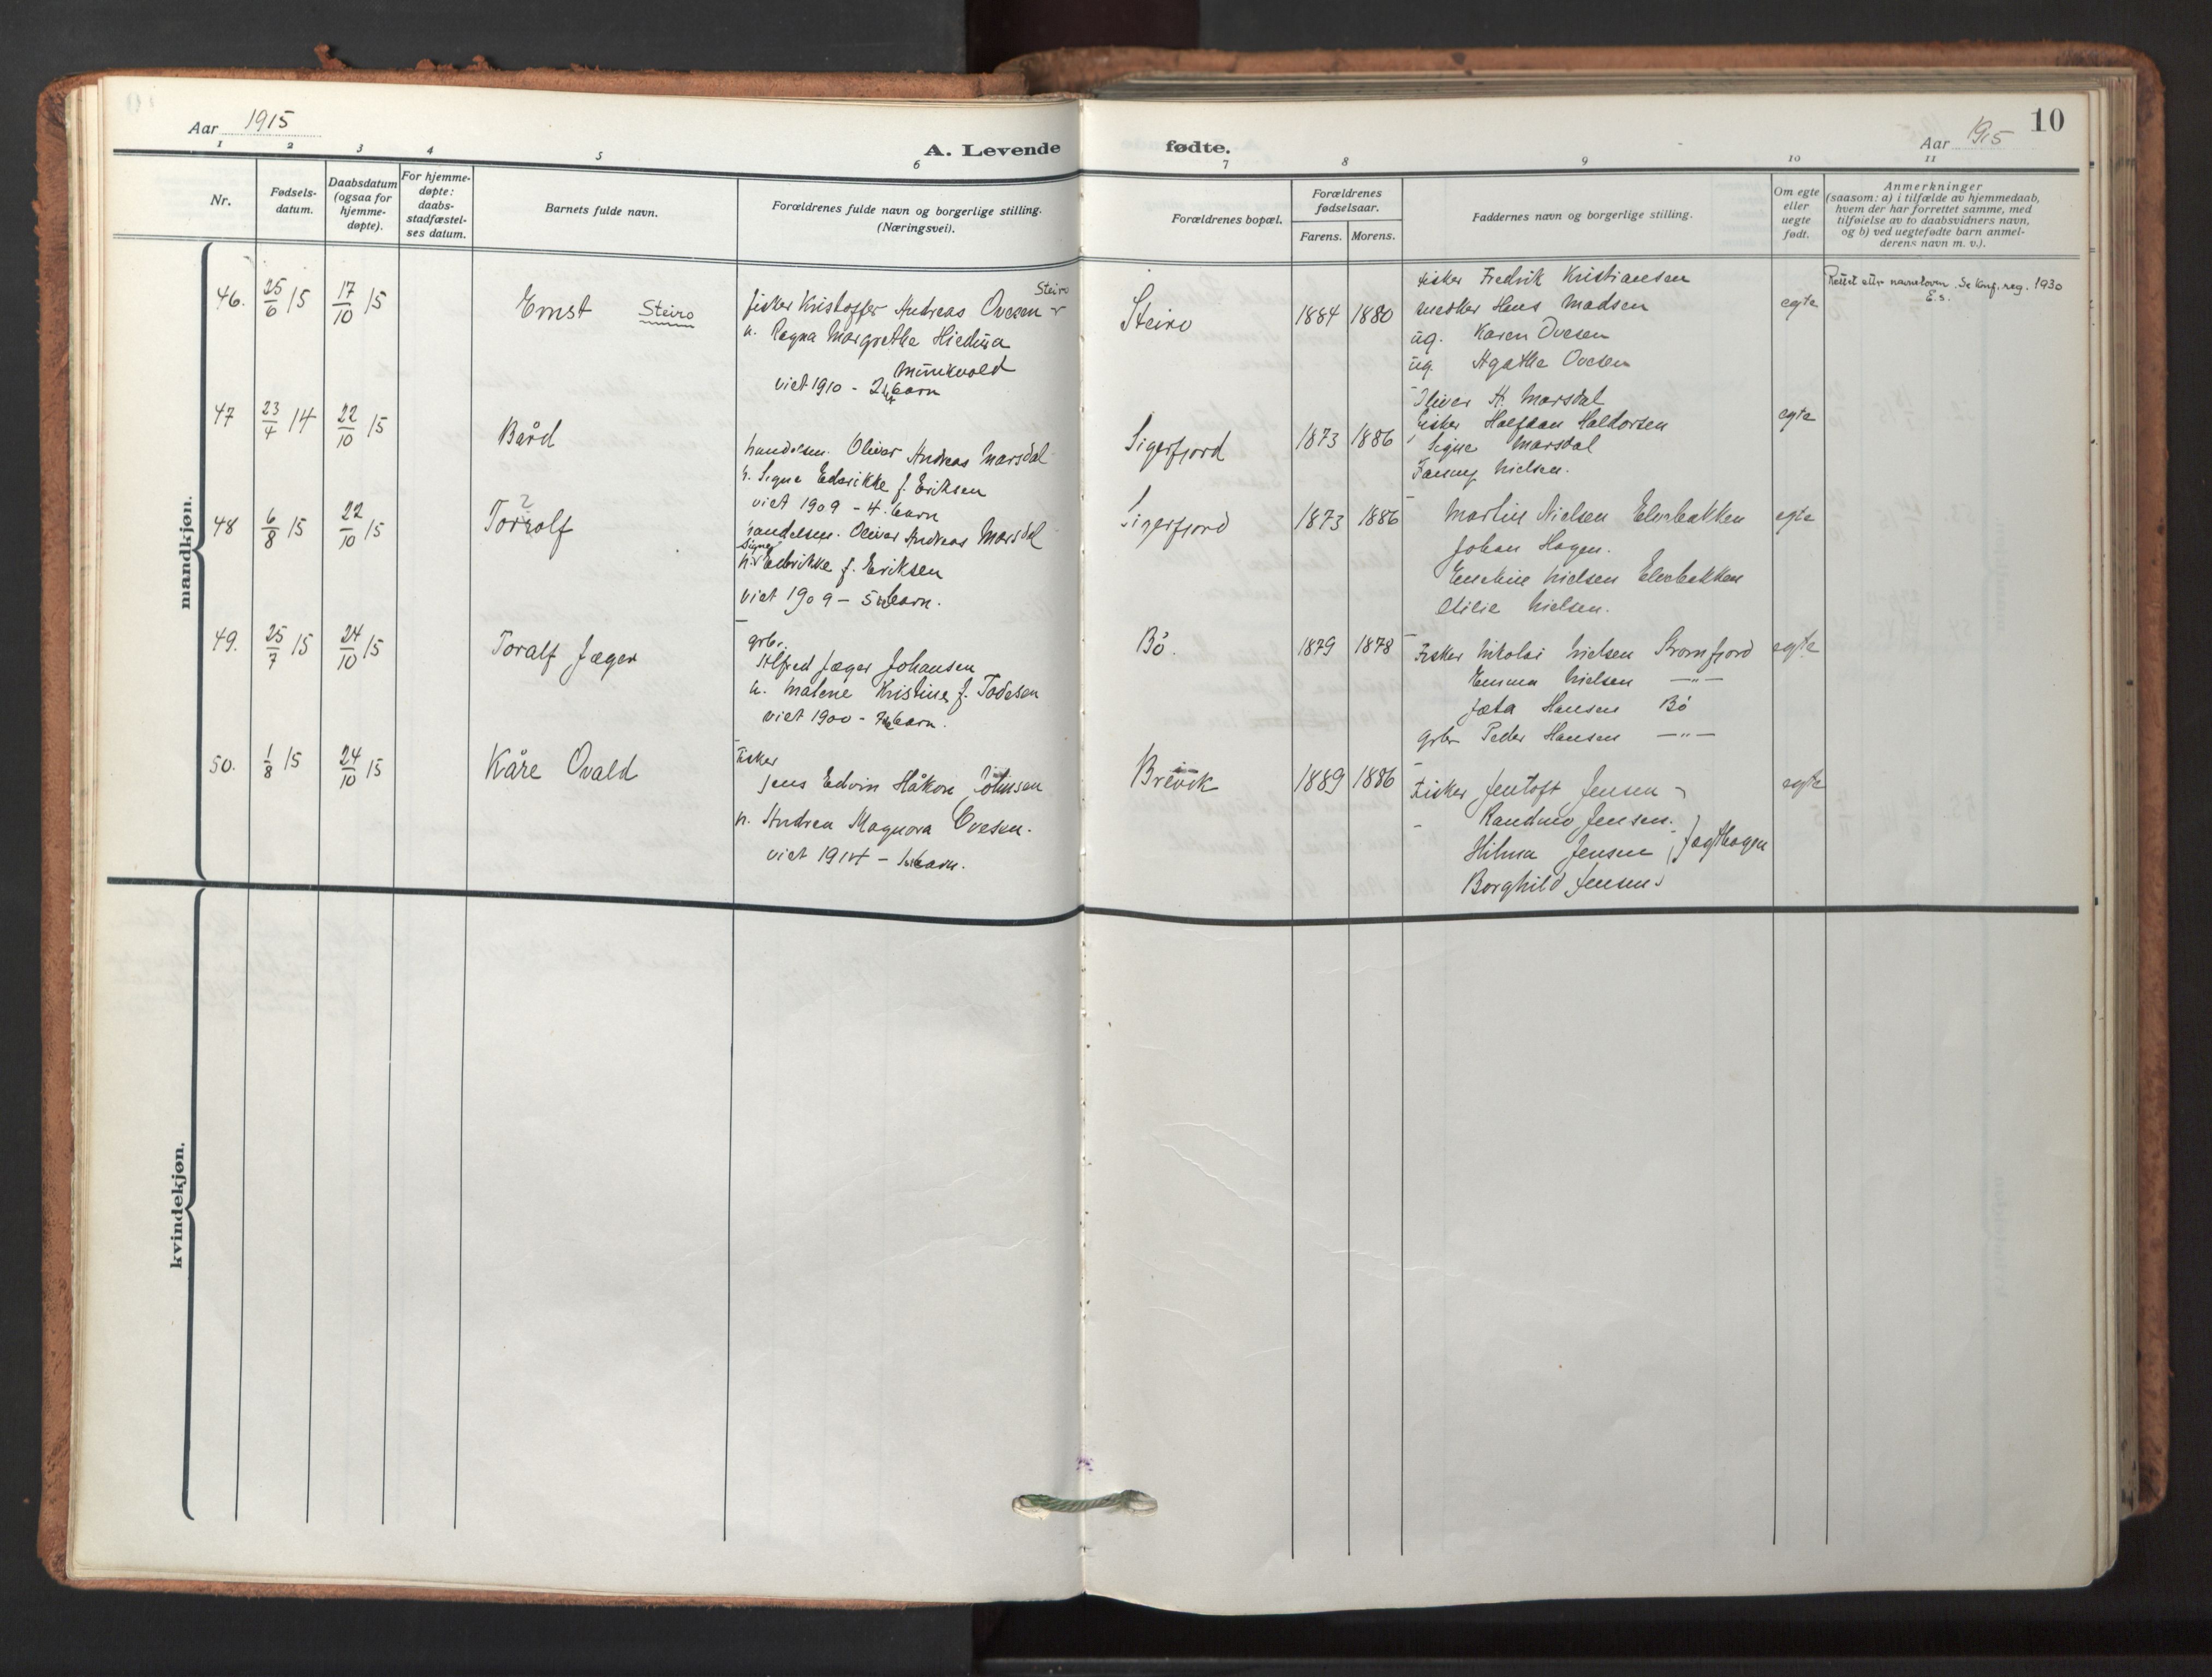 Aar 1915
A. Levende fødte.
Aar 1915
10
1 2 3 4 5 6 7 8 9 10 11
Nr.
Fødsels-
datum.
Daabsdatum
(ogsaa for
hjemme-
døpte).
For hjemme-
døpte:
daabs-
stadfæstel-
ses datum.
Barnets fulde navn.
Forældrenes fulde navn og borgerlige stilling.
(Næringsvei).
Forældrenes bopæl.
Forældrenes
fødselsaar.
Farens. Morens.
Faddernes navn og borgerlige stilling.
Om egte
eller
uegte
født.
Anmerkninger
(saasom: a) i tilfælde av hjemmedaab,
hvem der har forrettet samme, med
tilføielse av to daabsvidners navn,
og b) ved uegtefødte barn anmel-
derens navn m. v.).
mandkjøn.
46. 25/6 15 17/10 15 Ernst Steiro
Steiro
fisker Kristoffer Andreas Ovesen
u. Ragna Margrethe
Munkvold
viet 1910 - 2 barn
Steiro 1884 1880
Fisker Fredrik Kristiansen
Hans Madsen
ug. Karen Ovesen
ug. Agathe Ovesen
egte
Rettet efter navneloven. Se konf. reg. 1930
E.S.
47 23/4 14 22/10 15 Bård
handelsm. Oliver Andreas Marsdal
h. Signe Edvrikke f. Eriksen
viet 1909 - 4. barn
Sigerfjord 1873 1886
Oliver A. Marsdal
Fisker Halfdan Haldorsen
Signe Marsdal
Fanny Nielsen.
egte
48 6/8 15 22/10 15 Torrolf
handelsm. Oliver Andreas Marsdal
Signe
h. Edvrikke f. Eriksen
viet 1909 - 5 barn.
Sigerfjord 1873 1886
Martin Nielsen Elvebakken
Johan Hagen.
Nielsen Elvebakken
Otilie Nielsen.
egte
49. 25/7 15 24/10 15 Toralf Jæger
grbr.
Alfred Jæger Johansen
u. Malene Kristine f. Todesen
viet 1900 - 7 barn.
Bö. 1879 1878
Fisker Nikolai Nielsen Kromfjord
Emma Nielsen —"—
Jæta Hansen Bö
grbr Peder Hansen —"—
egte
50. 1/8 15 24/10 15 Kåre Ovald
Fisker
Jens Edvin Håkon Johnsen
h. Andrea Magnora Ovesen.
viet 1914 - 1 barn.
Brevik 1889 1886
Fisker Jentoft Jensen
Randmo Jensen.
Hilma Jensen Jægthagen
Borghild Jensen
egte
kvindekjøn.